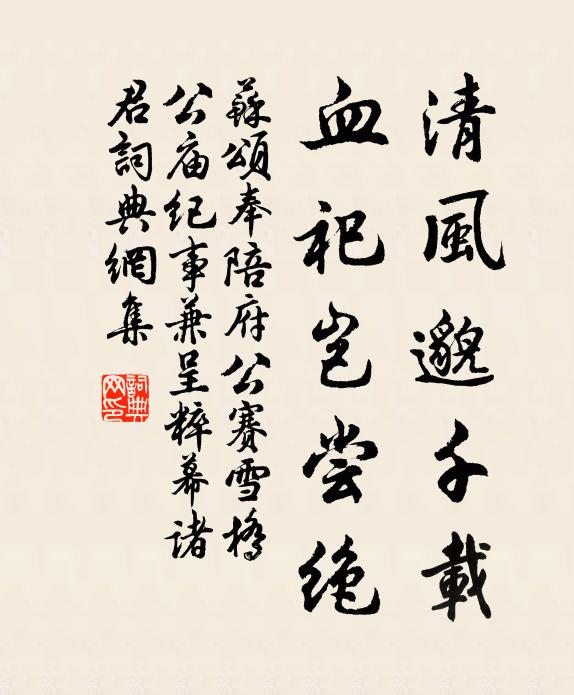 清風邈千載
血祀豈嘗絶
蘇頌奉陪府公賽雪橋
公庙纪事蒹呈粹幕諸
君詞典網集
詞典网印